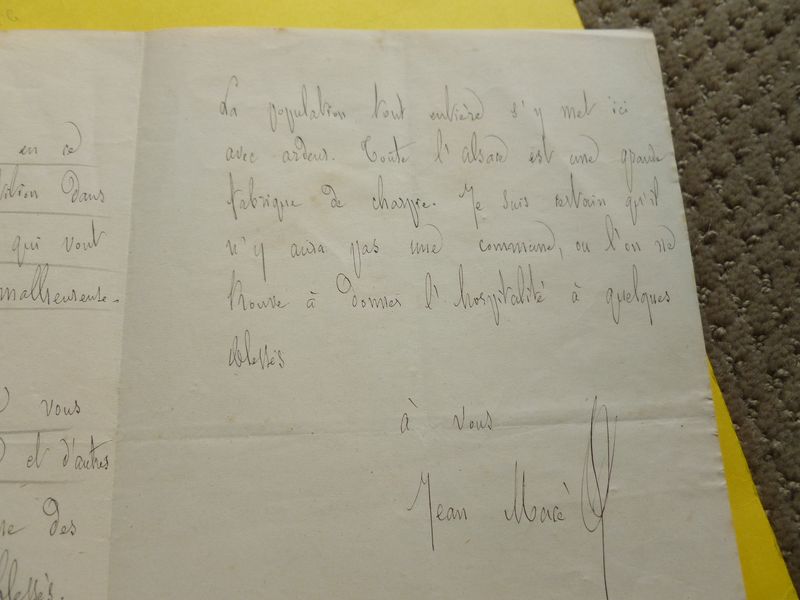 en ce
dans
qui vont
malheureuse.
vous
et d'autres
des
blessés.
La population tout entière s'y met ici
avec ardeur. Toute l'Alsace est une grande
fabrique de charpie. Je suis certain qu'il
n'y aura pas une commune, ou l'on ne
trouve à donner l'hospitalité à quelques
blessés
à vous
Jean Macé